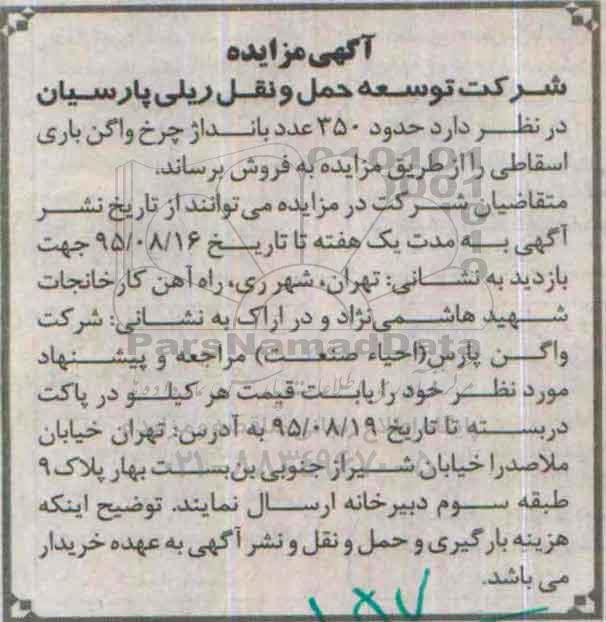 آگهی مزایده
شرکت توسعه حمل و نقل ریلی پارسیان
در نظر دارد حدود ۳۵۰ عدد بانداژ چرخ واگن باری
اسقاطی را از طریق مزایده به فروش برساند.
متقاضیان شرکت در مزایده می‌توانند از تاریخ نشر
آگهی به مدت یک هفته تا تاریخ ۹۵/۰۸/۱۶ جهت
بازدید به نشانی: تهران، شهر ری، راه آهن کارخانجات
شهید هاشمی‌نژاد و در اراک به نشانی: شرکت
واگن پارس(احیاء صنعت) مراجعه و پیشنهاد
مورد نظر خود را بابت قیمت هر کیلو در پاکت
دربسته تا تاریخ ۹۵/۰۸/۱۹ به آدرس: تهران خیابان
ملاصدرا خیابان شیراز جنوبی بن‌بست بهار پلاک ۹
طبقه سوم دبیرخانه ارسال نمایند. توضیح اینکه
هزینه بارگیری و حمل و نقل و نشر آگهی به عهده خریدار
می باشد.
ParsNamadData
۱۸۷